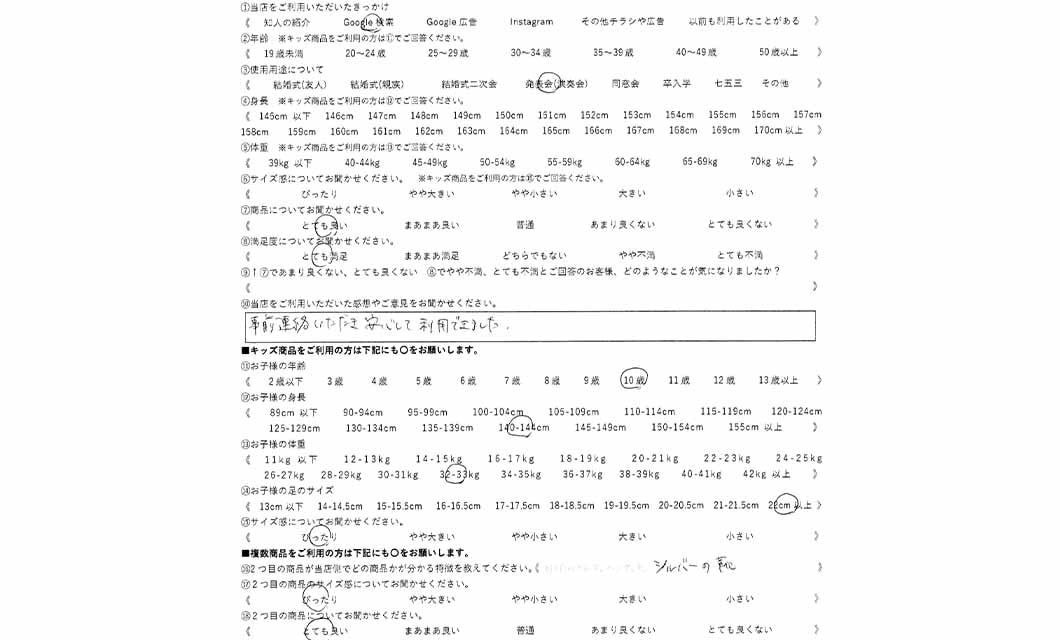 ①当店をご利用いただいたきっかけ
《 知人の紹介 Google 検索 Google 広告 Instagram その他チラシや広告 以前も利用したことがある 》
②年齢 ※キッズ商品をご利用の方は⑪でご回答ください。
《 19歳未満 20～24歳 25～29歳 30～34歳 35～39歳 40～49歳 50歳以上 》
③使用用途について
《 結婚式(友人) 結婚式(親族) 結婚式二次会 発表会(演奏会) 同窓会 卒入学 七五三 その他 》
④身長 ※キッズ商品をご利用の方は⑫でご回答ください。
《 145cm 以下 146cm 147cm 148cm 149cm 150cm 151cm 152cm 153cm 154cm 155cm 156cm 157cm
158cm 159cm 160cm 161cm 162cm 163cm 164cm 165cm 166cm 167cm 168cm 169cm 170cm以上 》
⑤体重 ※キッズ商品をご利用の方は⑬でご回答ください。
《 39kg 以下 40-44kg 45-49kg 50-54kg 55-59kg 60-64kg 65-69kg 70kg 以上 》
⑥サイズ感についてお聞かせください。 ※キッズ商品をご利用の方は⑮でご回答ください。
《 ぴったり やや大きい やや小さい 大きい 小さい 》
⑦商品についてお聞かせください。
《 とても良い まあまあ良い 普通 あまり良くない とても良くない 》
⑧満足度についてお聞かせください。
《 とても満足 まあまあ満足 どちらでもない やや不満 とても不満 》
⑨↑⑦であまり良くない、とても良くない ⑧でやや不満、とても不満とご回答のお客様、どのようなことが気になりましたか?
《 》
⑩当店をご利用いただいた感想やご意見をお聞かせください。
事前連絡いただき安心して利用できました.
■キッズ商品をご利用の方は下記にも〇をお願いします。
⑪お子様の年齢
《 2歳以下 3歳 4歳 5歳 6歳 7歳 8歳 9歳 10歳 11歳 12歳 13歳以上 》
⑫お子様の身長
《 89cm 以下 90-94cm 95-99cm 100-104cm 105-109cm 110-114cm 115-119cm 120-124cm
125-129cm 130-134cm 135-139cm 140-144cm 145-149cm 150-154cm 155cm 以上 》
⑬お子様の体重
《 11kg 以下 12-13kg 14-15kg 16-17kg 18-19kg 20-21kg 22-23kg 24-25kg
26-27kg 28-29kg 30-31kg 32-33kg 34-35kg 36-37kg 38-39kg 40-41kg 42kg 以上 》
⑭お子様の足のサイズ
《 13cm 以下 14-14.5cm 15-15.5cm 16-16.5cm 17-17.5cm 18-18.5cm 19-19.5cm 20-20.5cm 21-21.5cm 22cm以上 》
⑮サイズ感についてお聞かせください。
《 ぴったり やや大きい やや小さい 大きい 小さい 》
■複数商品をご利用の方は下記にも〇をお願いします。
⑯2つ目の商品が当店側でどの商品かが分かる特徴を教えてください。《 シルバーの靴 》
⑰2つ目の商品のサイズ感についてお聞かせください。
《 ぴったり やや大きい やや小さい 大きい 小さい 》
⑱2つ目の商品についてお聞かせください。
《 とても良い まあまあ良い 普通 あまり良くない とても良くない 》